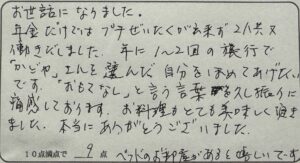 お世話になりました。
年金だけではプチぜいたくが出来ず2人共又
働きだしました。年に1〜2回の旅行で
「かじや」さんを選んだ自分をほめてあげたい
です。"おもてなし"と言う言葉を久し振りに
痛感しております。お料理もとても美味しく頂き
ました。本当にありがとうございました。
10点満点で 9 点 ベッドのお部屋があると嬉しいです